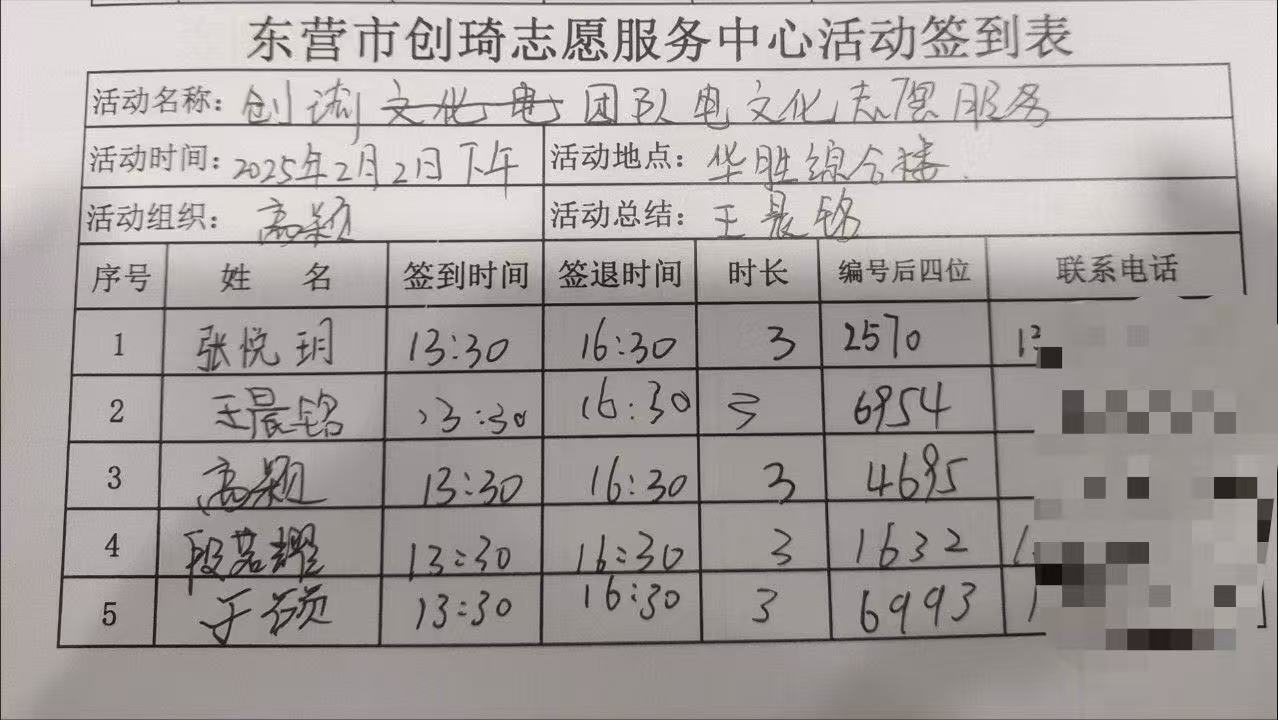 东营市创琦志愿服务中心活动签到表
活动名称: 创琦文化电团队电文化志愿服务
活动时间: 2025年2月2日下午 活动地点: 华胜综合楼
活动组织: 高颖 活动总结: 王晨铭
序号 姓名 签到时间 签退时间 时长 编号后四位 联系电话
1 张悦玥 13:30 16:30 3 2570
2 王晨铭 13:30 16:30 3 6954
3 高颖 13:30 16:30 3 4695
4 段若耀 13:30 16:30 3 1632
5 于硕 13:30 16:30 3 6993